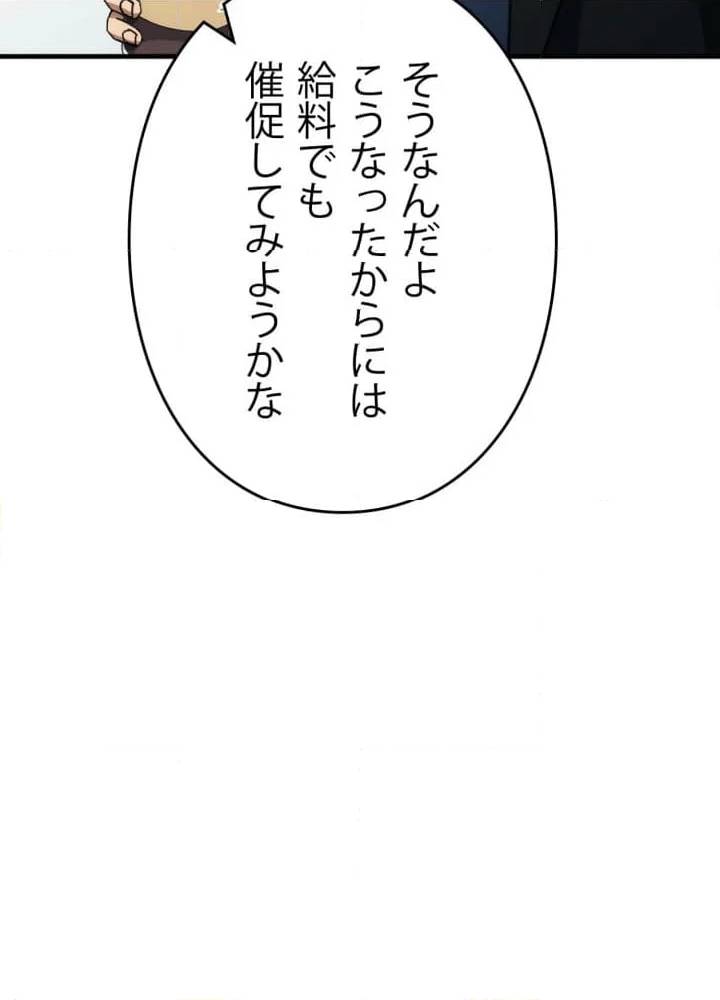 そうなんだよ
こうなったからには
給料でも
催促してみようかな